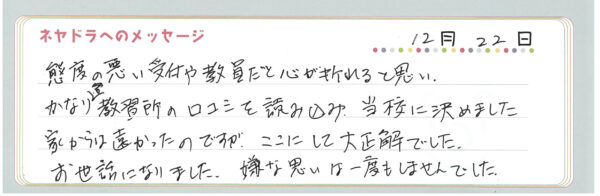 ネヤドラへのメッセージ 12月 22日
態度の悪い受付や教員だと心が折れると思い、
かなり色々教習所の口コミを読み込み、当校に決めました
家からは遠かったのですが、ここにして大正解でした。
お世話になりました。嫌な思いは一度もしませんでした。